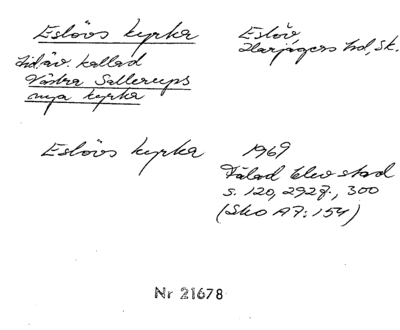 Eslövs kyrka
Eslöv
Harjagers hd, Sk.
Tid. äv. kallad
Västra Sallerups
nya kyrka
Eslövs kyrka
1969
blev stad
s. 120, 292f., 300
(Sko A7: 154)
Nr 21678